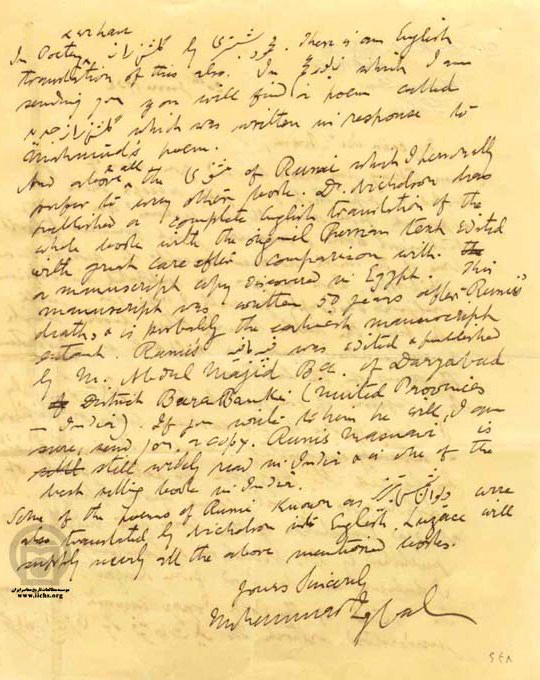 perhaps
In Poetry گلشن راز by شبستری. There is an English
translation of this also. In زبور عجم which I am
sending you you will find a poem called
گلشن راز جدید which was written in response to
Mahmud's poem.
And above all the مثنوی of Rumi which I personally
prefer to every other book. Dr. Nicholson has
published a complete English translation of the
whole book with the original Persian text edited
with great care after comparison with the
a manuscript copy discovered in Egypt. This
manuscript was written 50 years after Rumi's
death, & is probably the earliest manuscript
extant. Rumi's فیه ما فیه was edited & published
by M. Abdul Majid B.A. of Daryabad
of District Bara Banki (United Provinces
– India). If you write to him he will, I am
sure, send you a copy. Rumi's Masnavi is
still still widely read in India & is one of the
best selling books in India.
Some of the poems of Rumi known as دیوان شمس تبریز were
also translated by Nicholson into English. Luzac will
supply nearly all the above mentioned books.
Yours Sincerely
Muhammad Iqbal
www.iichs.org